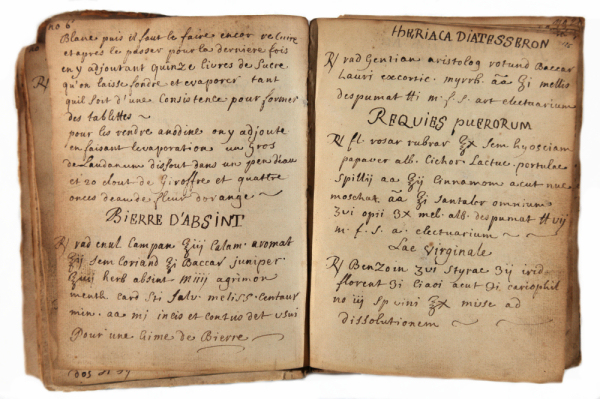 no 6
Blanc puis il faut le faire encor recuire
et apres le passer pour la derniere fois
en y adjoutant quinze livres de sucre
qu'on laisse fondre et evaporer tant
quil soit d'une Consistence pour former
des tablettes
pour les rendre anodine on y adjoute
en faisant levaporation un gros
de Laudanum dissout dans un
et 20 clout de Giroffre et quattre
onces deau de fleur dorange
BIERRE D'ABSINT
℞ rad enul Campan ʒiij Calam. aromat
ʒij sem Coriand ʒi Baccar juniper
ʒiij herb absint Miiij agrimon
menth card Sti Salv meliss. Centaur
min. aa mj incis et contus det usui
Pour une Gime de Bierre
THERIACA DIATESSERON
℞ rad Gentian aristolog rotund Baccar
Lauri excortic. myrrh. āā ʒi mellis
despumat ℔ i m. f. s. art electuarium
REQUIES PUERORUM
℞ fl. rosar rubrar ʒx sem hyosciam
papaver alb. Cichor. Lactuc. portulac
Spillij aa ʒij Cinnamom acut nuc
moschat āā ʒi Santalor omnium
ʒvi opii ʒx mel. alb. despumat ℔ vij
m. f. s. a. electuarium
Lac Virginale
℞ Benzoin ʒvi Styrac ʒij irid
florent ʒi acut ʒi cariophil
no iij sp vini ʒx misse ad
dissolutionem